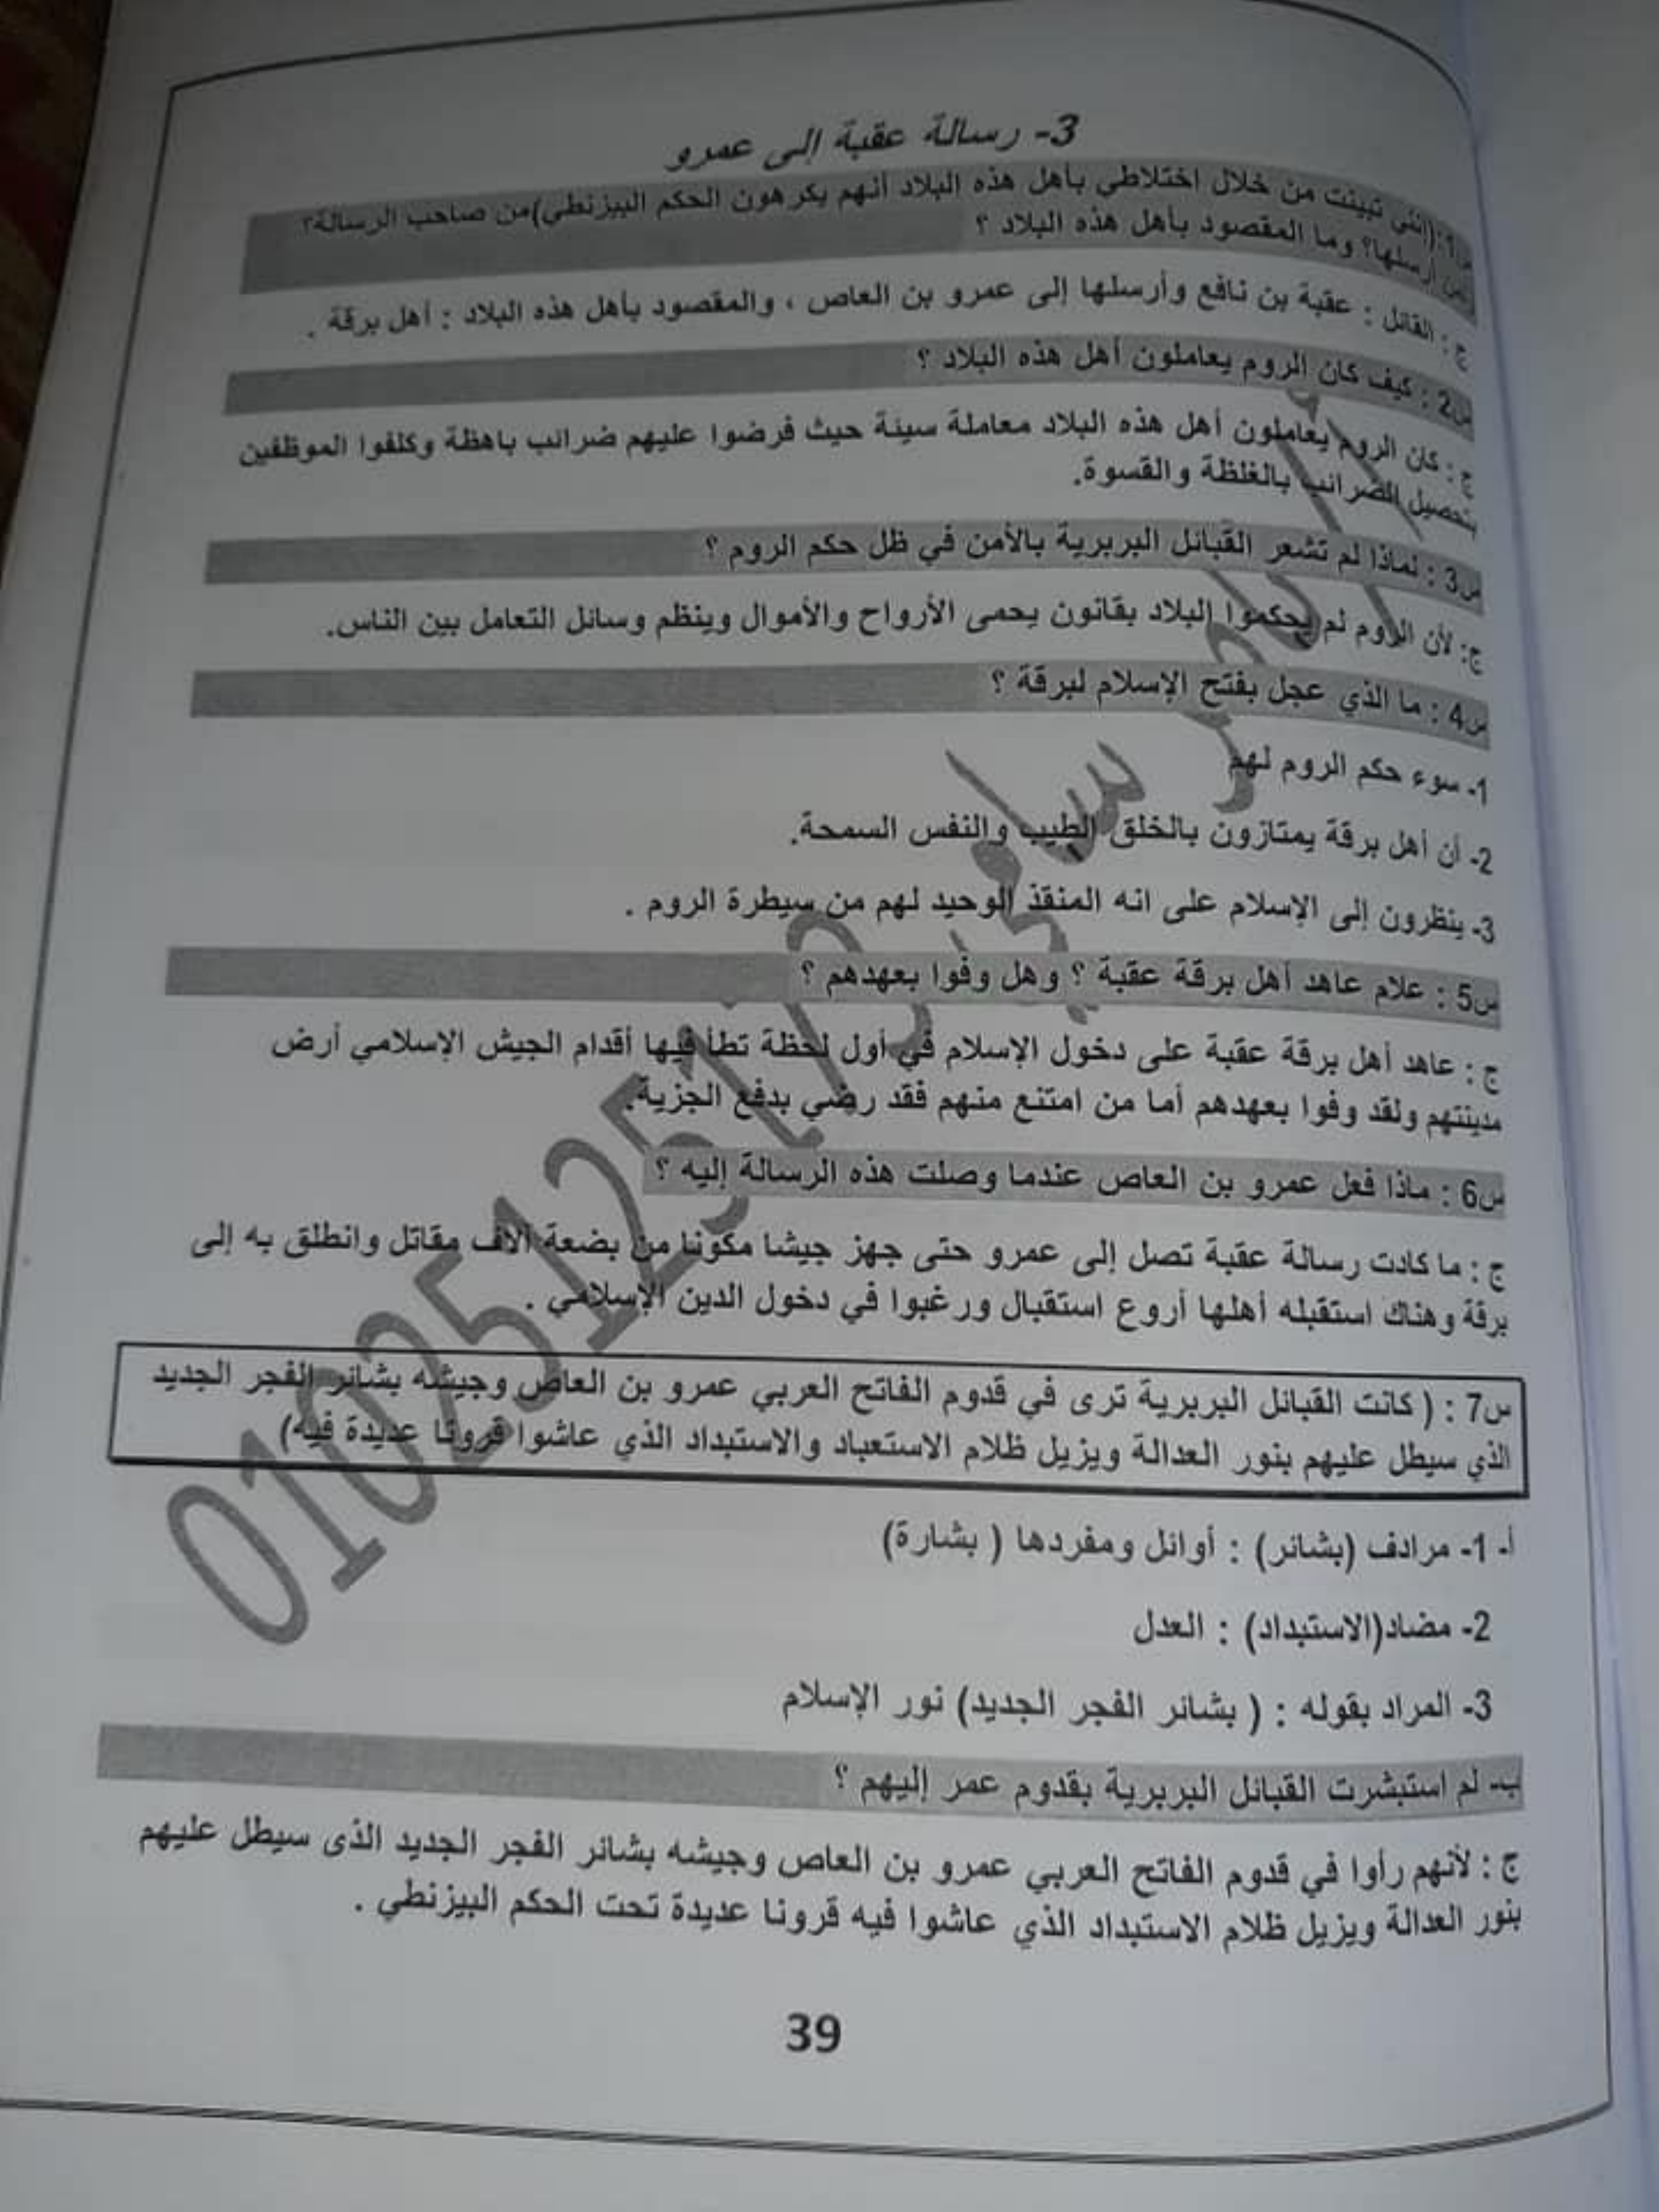 3- رسالة عقبة إلى عمرو
س1:(إنني تبينت من خلال اختلاطي بأهل هذه البلاد أنهم يكرهون الحكم البيزنطي)من صاحب الرسالة؟
أرسلها؟ وما المقصود بأهل هذه البلاد ؟
ج : القائل : عقبة بن نافع وأرسلها إلى عمرو بن العاص ، والمقصود بأهل هذه البلاد : أهل برقة .
س2 : كيف كان الروم يعاملون أهل هذه البلاد ؟
ج : كان الروم يعاملون أهل هذه البلاد معاملة سيئة حيث فرضوا عليهم ضرائب باهظة وكلفوا الموظفين
بتحصيل الضرائب بالغلظة والقسوة.
س3 : لماذا لم تشعر القبائل البربرية بالأمن في ظل حكم الروم ؟
ج: لأن الروم لم يحكموا البلاد بقانون يحمى الأرواح والأموال وينظم وسائل التعامل بين الناس.
س4 : ما الذي عجل بفتح الإسلام لبرقة ؟
1- سوء حكم الروم لهم
2- أن أهل برقة يمتازون بالخلق الطيب والنفس السمحة.
3- ينظرون إلى الإسلام على انه المنقذ الوحيد لهم من سيطرة الروم .
س5 : علام عاهد أهل برقة عقبة ؟ وهل وفوا بعهدهم ؟
ج : عاهد أهل برقة عقبة على دخول الإسلام في أول لحظة تطأ فيها أقدام الجيش الإسلامي أرض
مدينتهم ولقد وفوا بعهدهم أما من امتنع منهم فقد رضي بدفع الجزية.
س6 : ماذا فعل عمرو بن العاص عندما وصلت هذه الرسالة إليه ؟
ج : ما كادت رسالة عقبة تصل إلى عمرو حتى جهز جيشا مكونا من بضعة آلاف مقاتل وانطلق به إلى
برقة وهناك استقبله أهلها أروع استقبال ورغبوا في دخول الدين الإسلامي .
س7 : ( كانت القبائل البربرية ترى في قدوم الفاتح العربي عمرو بن العاص وجيشه بشائر الفجر الجديد
الذي سيطل عليهم بنور العدالة ويزيل ظلام الاستعباد والاستبداد الذي عاشوا قرونا عديدة فيه)
أ- 1- مرادف (بشائر) : أوائل ومفردها ( بشارة)
2- مضاد(الاستبداد) : العدل
3- المراد بقوله : ( بشائر الفجر الجديد) نور الإسلام
ب- لم استبشرت القبائل البربرية بقدوم عمر إليهم ؟
ج : لأنهم رأوا في قدوم الفاتح العربي عمرو بن العاص وجيشه بشائر الفجر الجديد الذى سيطل عليهم
بنور العدالة ويزيل ظلام الاستبداد الذي عاشوا فيه قرونا عديدة تحت الحكم البيزنطي .
39